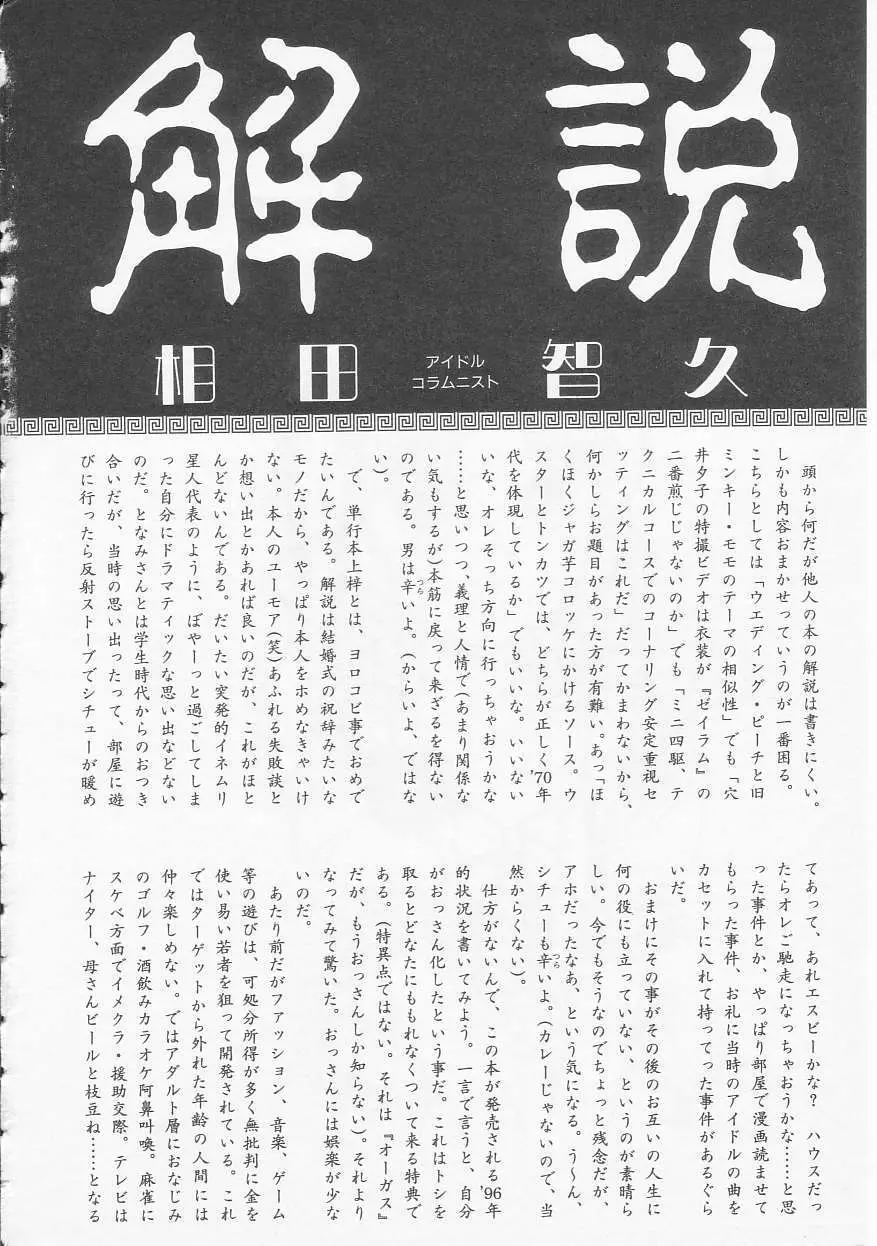 解説
相田智久
アイドル
コラムニスト
頭から何だが他人の本の解説は書きにくい。
しかも内容おまかせっていうのが一番困る。
こちらとしては「ウエディング・ピーチと旧
ミンキー・モモのテーマの相似性」でも「穴
井夕子の特撮ビデオは衣装が『ゼイラム』の
二番煎じじゃないのか」でも「ミニ四駆、テ
クニカルコースでのコーナリング安定重視セ
ッティングはこれだ」だってかまわないから、
何かしらお題目があった方が有難い。あっ「ほ
くほくジャガ芋コロッケにかけるソース。ウ
スターとトンカツでは、どちらが正しく'70年
代を体現しているか」でもいいな。いいない
いな、オレそっち方向に行っちゃおうかな
……と思いつつ、義理と人情で(あまり関係な
い気もするが)本筋に戻って来ざるを得ない
のである。男は辛いよ。(からいよ、ではな
い)。
で、単行本上梓とは、ヨロコビ事でおめで
たいんである。解説は結婚式の祝辞みたいな
モノだから、やっぱり本人をホめなきゃいけ
ない。本人のユーモア(笑)あふれる失敗談と
か想い出とかあれば良いのだが、これがほと
んどないんである。だいたい突発的イネムリ
星人代表のように、ぼやーっと過ごしてしま
った自分にドラマティックな思い出などない
のだ。となみさんとは学生時代からのおつき
合いだが、当時の思い出ったって、部屋に遊
びに行ったら反射ストーブでシチューが暖め
てあって、あれエスビーかな? ハウスだっ
たらオレご馳走になっちゃおうかな……と思
った事件とか、やっぱり部屋で漫画読ませて
もらった事件、お礼に当時のアイドルの曲を
カセットに入れて持ってった事件があるぐら
いだ。
おまけにその事がその後のお互いの人生に
何の役にも立っていない、というのが素晴ら
しい。今でもそうなのでちょっと残念だが、
アホだったなあ、という気になる。う〜ん、
シチューも辛いよ。(カレーじゃないので、当
然からくない)。
仕方がないんで、この本が発売される'96年
的状況を書いてみよう。一言で言うと、自分
がおっさん化したという事だ。これはトシを
取るとどなたにももれなくついて来る特典で
ある。(特異点ではない。それは『オーガス』
だが、もうおっさんしか知らない)。それより
なってみて驚いた。おっさんには娯楽が少な
いのだ。
あたり前だがファッション、音楽、ゲーム
等の遊びは、可処分所得が多く無批判に金を
使い易い若者を狙って開発されている。これ
ではターゲットから外れた年齢の人間には
仲々楽しめない。ではアダルト層におなじみ
のゴルフ・酒飲みカラオケ阿鼻叫喚。麻雀に
スケベ方面でイメクラ・援助交際。テレビは
ナイター、母さんビールと枝豆ね……となる